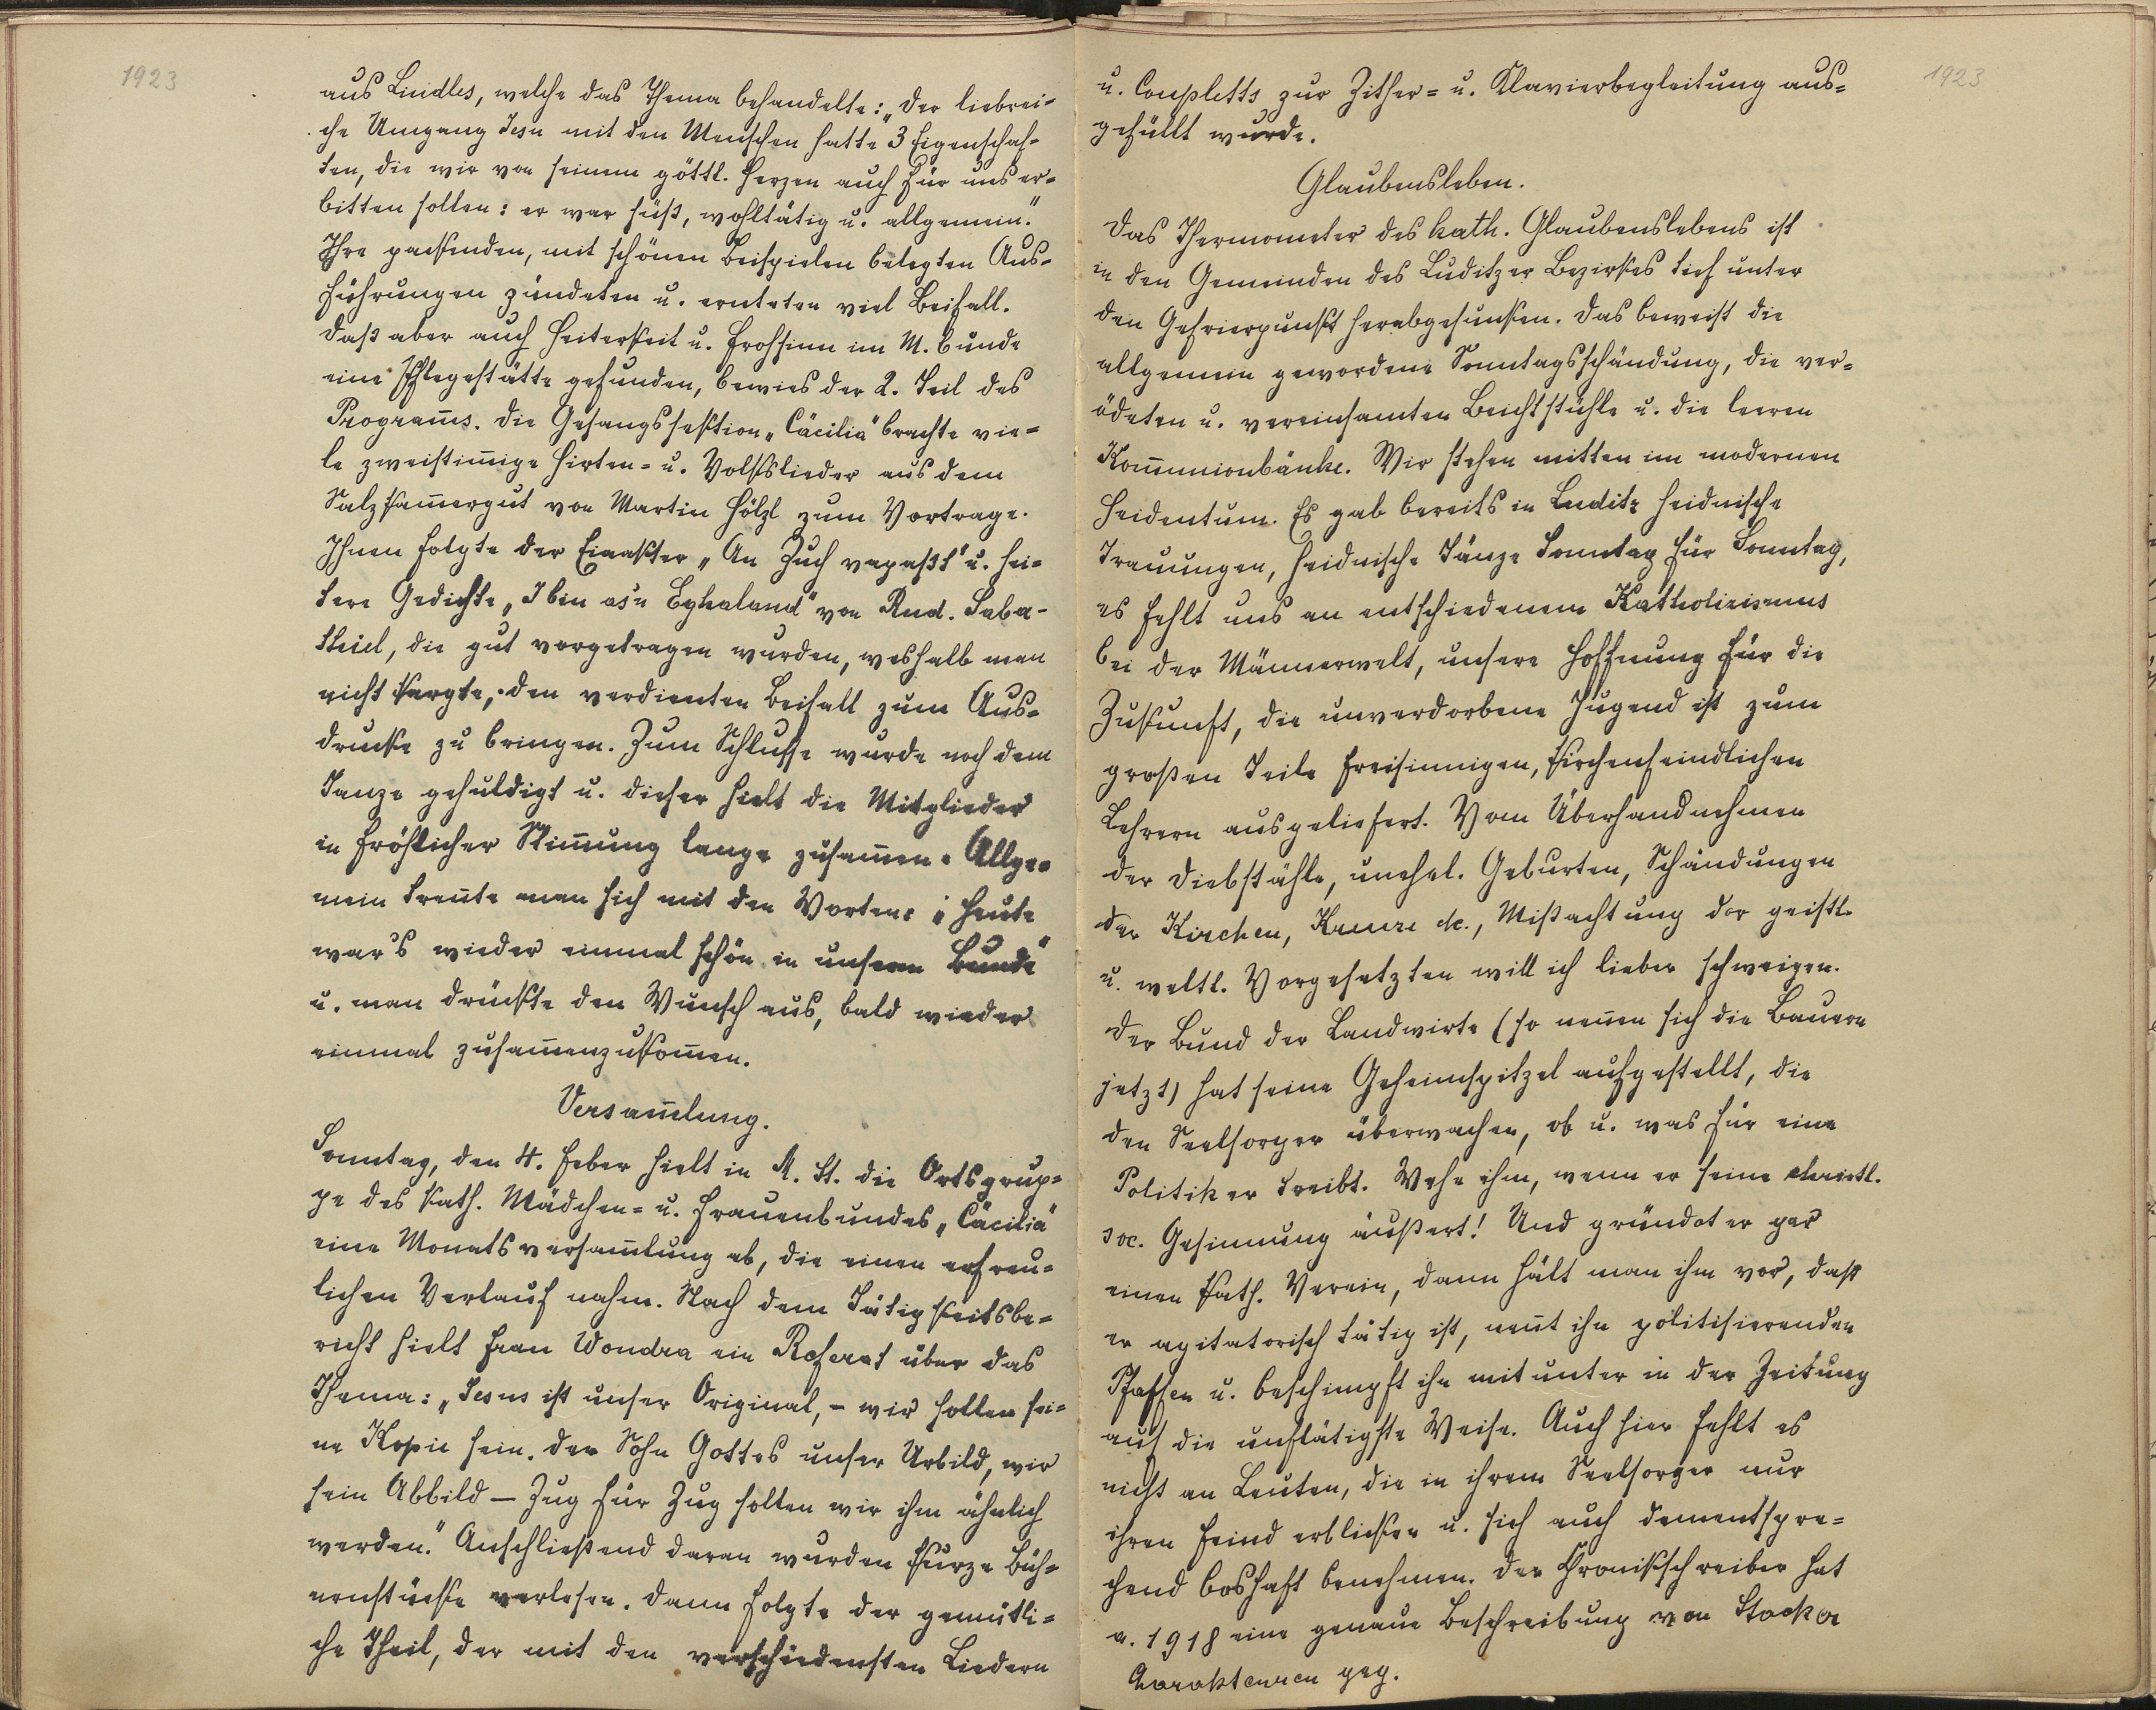 1923
aus Lindles, welche das Thema behandelte: „Der liebrei-
che Umgang Jesu mit den Menschen hatte 3 Eigenschaf-
ten, die wir von seinem göttl. Herzen auch für uns er-
bitten sollen: er war süß, wohltätig u. allgemein.“
Ihre packenden, mit schönen Beispielen belegten Aus-
führungen zündeten u. ernteten viel Beifall.
Daß aber auch Heiterkeit u. Frohsinn im M. bunde
eine Pflegestätte gefunden, bewies der 2. Teil des
Program̄s. Die Gesangssektion „Cäcilia“ brachte vie-
le zweistim̄ige Hirten- u. Volkslieder aus dem
Salzkam̄ergut von Martin Hölzl zum Vortrage.
Ihnen folgte der Einakter „An Zuch vapaßt“ u. hei-
tere Gedichte „I bin as'n Eghaland“ von Rud. Saba-
thiel, die gut vorgetragen wurden, weshalb man
nicht kargte, den verdienten Beifall zum Aus-
drucke zu bringen. Zum Schlusse wurde noch dem
Tanze gehuldigt u. dieser hielt die Mitglieder
in fröhlicher Stim̄ung lange zusam̄en. Allge-
mein tren̄te man sich mit den Worten: „Heute
war's wieder einmal schön in unserem Bunde“
u. man drückte den Wunsch aus, bald wieder
einmal zusam̄enzukom̄en.
Versam̄lung.
Sonntag, den 4. Feber hielt in M. St. die Ortsgrup-
pe des kath. Mädchen- u. Frauenbundes „Cäcilia“
eine Monatsversam̄lung ab, die einen erfreu-
lichen Verlauf nahm. Nach dem Tätigkeitsbe-
richt hielt Frau Wondra ein Referat über das
Thema: „Jesus ist unser Original, - wir sollen sei-
ne Kopie sein. Der Sohn Gottes unser Urbild, wir
sein Abbild — Zug für Zug sollen wir ihm ähnlich
werden.“ Anschließend daran wurden kurze Büh-
nenstücke verlesen. Dann folgte der gemütli-
che Theil, der mit den verschiedensten Liedern
1923
u. Coupletts zur Zither- u. Klavierbegleitung aus-
gefüllt wurde.
Glaubensleben.
Das Thermometer des kath. Glaubenslebens ist
in den Gemeinden des Luditzer Bezirkes tief unter
den Gefrierpunkt herabgesunken. Das beweist die
allgemein gewordene Sonntagsschändung, die ver-
ödeten u. vereinsamten Beichtstühle u. die leeren
Kom̄unionbänke. Wir stehen mitten im modernen
Heidentum. Es gab bereits in Luditz heidnische
Trauungen, heidnische Tänze Sonntag für Sonntag,
es fehlt uns an entschiedenem Katholizismus
bei der Männerwelt, unsere Hoffnung für die
Zukunft, die unverdorbene Jugend ist zum
großen Teile freisinnigen, kirchenfeindlichen
Lehrern ausgeliefert. Vom Überhandnehmen
der Diebstähle, unehel. Geburten, Schändungen
der Kirchen, Kreuze etc., Mißachtung der geistl.
u. weltl. Vorgesetzten will ich lieber schweigen.
Der Bund der Landwirte (so nen̄en sich die Bauern
jetzt) hat seine Geheimspitzel aufgestellt, die
den Seelsorger überwachen, ob u. was für eine
Politik er treibt. Wehe ihm, wenn er seine christl.
soc. Gesinnung äußert! Und gründet er gar
einen kath. Verein, dann hält man ihm vor, daß
er agitatorisch tätig ist, nen̄t ihn politisierenden
Pfaffen u. beschimpft ihn mitunter in der Zeitung
auf die unflätigste Weise. Auch hier fehlt es
nicht an Leuten, die in ihrem Seelsorger nur
ihren Feind erblicken u. sich auch dementspre-
chend boshaft benehmen. Der Chronikschreiber hat
a. 1918 eine genaue Beschreibung von
geg.